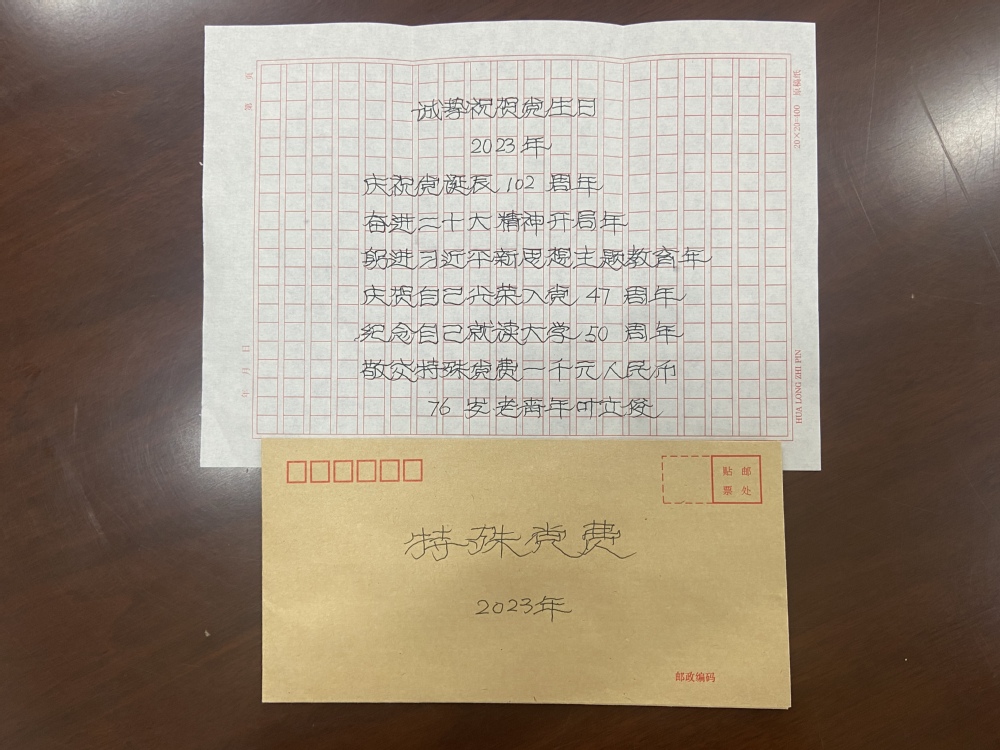 诚挚祝贺党生日
2023年
庆祝党诞辰102周年
奋进二十大精神开局年
躬进习近平新思想主题教育年
庆贺自己光荣入党47周年
纪念自己就读大学50周年
敬交特殊党费一千元人民币
76岁老青年叶立俊
第 页
年 月 日
20×20=400 原稿纸
HUA LONG ZHI PIN
贴 邮
票 处
特殊党费
2023年
邮政编码